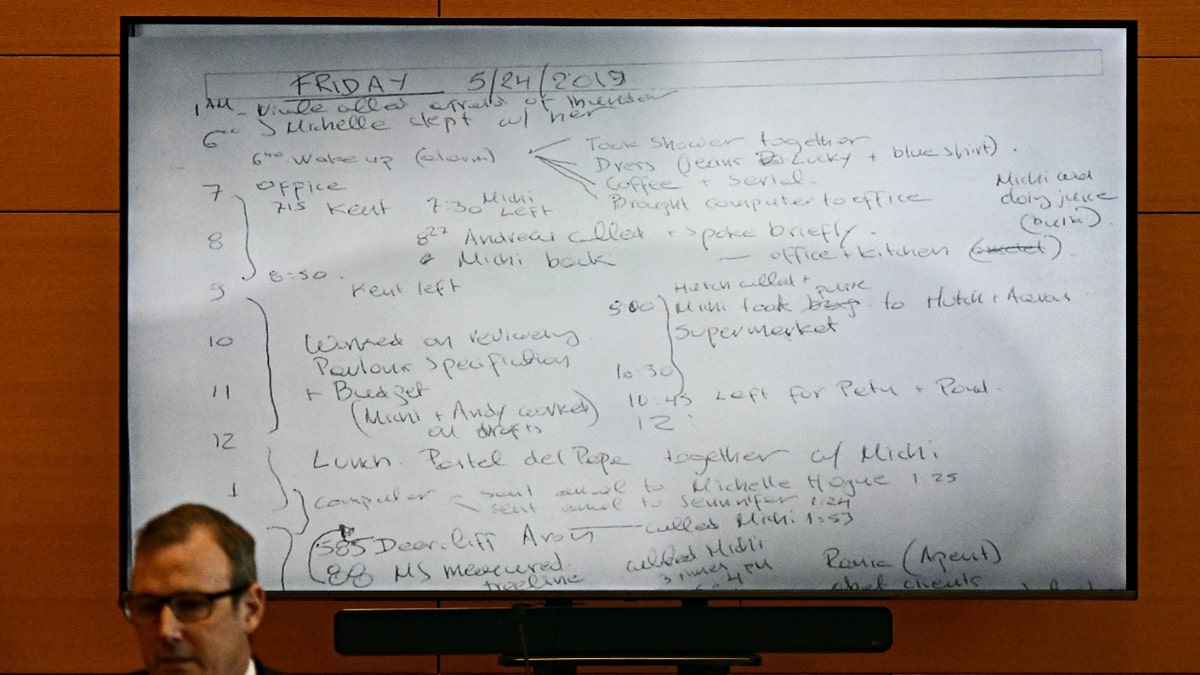 FRIDAY 5/24/2019
1 AM - called afraid of
6 Michelle slept w/ her
Wake up (alarm)
Took shower together
Dress (jeans Lucky + blue shirt).
Coffee + serial.
Brought computer to office
7 office
715 Kent 7:30 Michi Left
Michi and doing juice
8 8 27 Andrew called + spoke briefly.
Michi back — office + kitchen
8:50.
9 Kent left
Hutch called +
Michi took to Hutch +
Supermarket
10 Worked on reviewing
Specifiction
10:30
11 + Budget
10:45 Left for Petu + Paul.
(Michi + Andy worked on drafts)
12
12 Lunch. Pastel del Pope together w/ Michi
1 computer
sent email to Michelle Hogue 1:25
sent email to Jennnifer 1:24
585 Deercliff Avon — called Michi 1:53
88 MS measured treeline
called Michi 3 times
(Agent)
clients